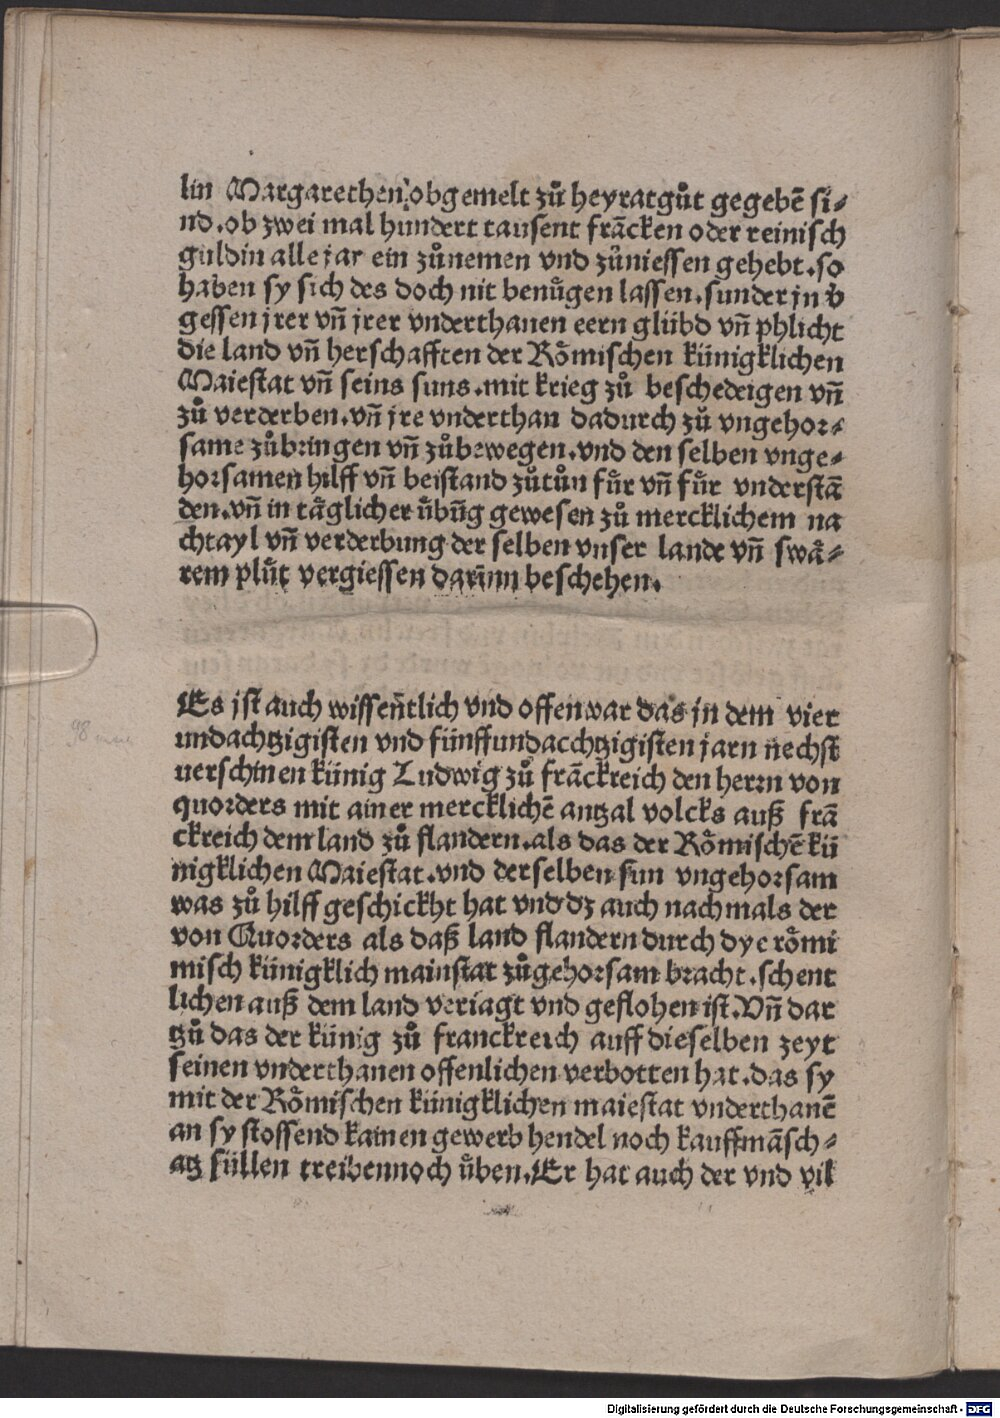 lin Margarethen obgemelt zů heyratgůt gegebē si⸗
nd. ob zwei mal hundert tausent frācken oder reinisch
guldin alle jar ein zůnemen vnd zůniessen gehebt. so
haben sy sich des doch nit benůgen lassen. sunder jn v̄
gessen jrer vñ jrer vnderthanen eern glübd vñ phlicht
die land vñ herschafften der Römischen künigklichen
Maiestat vñ seins suns. mit krieg zů beschedeigen vñ
zů verderben. vñ jre vnderthan dadurch zů vngehor⸗
same zůbringen vñ zůbewegen. vnd den selben vnge⸗
horsamen hilff vñ beistand zůtůn fůr vñ fůr vnderstā
den. vñ in täglicher übūg gewesen zů mercklichem na
chtayl vñ verderbung der selben vnser lande vñ swä⸗
rem plůt vergiessen darinn beschehen.
Es ist auch wissentlich vnd offenwar das jn dem vier
undachtzigisten vnd fünffundacchtzigisten jarn nechst
uerschinen künig Ludwig zů frāckreich den herrn von
quorders mit ainer mercklichē antzal volcks auß frā
ckreich dem land zů flandern. als das der Römischē kü
nigklichen Maiestat. vnd derselben sun vngehorsam
was zů hilff geschickht hat vnd dz auch nachmals der
von Quorders als daß land flandern durch dye römi
misch künigklich mainstat zůgehorsam bracht. schent
lichen auß dem land veriagt vnd geflohen ist. Vñ dar
tzů das der künig zů franckreich auff dieselben zeyt
seinen vnderthanen offenlichen verbotten hat. das sy
mit der Römischen künigklichen maiestat vnderthanē
an sy stossend kainen gewerb hendel noch kauffmāsch⸗
atz füllen treiben noch üben. Er hat auch der vnd vil
98
Digitalisierung gefördert durch die Deutsche Forschungsgemeinschaft - DFG